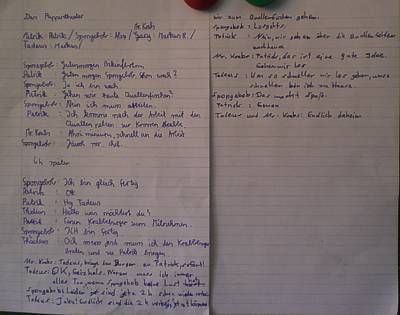 Das Puppentheater
Mr Krabs
Patrik: Patrik / Spongebob: Max / Gary: Markus R. /
Tadeus: Markus /
Spongebob: Gutenmorgen
Patrik: Guten morgen Spongebob. Schon wach?
Spongebob: Ja ich bin wach.
Patrik: Gehen wir heute Quallenfischen?
Spongebob: Nein ich muss arbeiten.
Patrik: Ich komme nach der Arbeit mit den
Quallen netzen zur Krossen Krabbe.
Mr Krabs: Ahoi schnell an die Arbeit
Spongebob: Mr. Chef.
6h später
Spongebob: Ich bin gleich fertig
Patrick: OK
Patrik: Hey Tadeus
Thadeus: Hallo was möchtest du?
Patrik: Einen Krabbenburger zum Mitnehmen.
Spongebob: ICH bin fertig.
Thadeus: Och menno jetzt muss ich den Krabbenburger
braten und zu Patrik bringen
Mr. Krabs: Tadeus, bring den Burger an Patrick, sofort!
Tadeus: OK, Geizhals. Warum muss ich immer
alles Tun, wenn Spongebob keine Lust hat
Spongebob: Leider
Tadeus: Juhu! Endlich sind die 2h
wir zum Quallenfischen gehen.
Spongebob: Losgehts.
Patrick: Nein, wir gehen über die Quallenfelder
Mr Krabs: Patrick, das ist eine gute Idee.
Tadeus: Um so schneller wir los gehen, umso
schneller bin ich zu Hause.
Spongebob: Das macht Spaß.
Patrick: Genau
Tadeus und Mr. Krabs: Endlich daheim